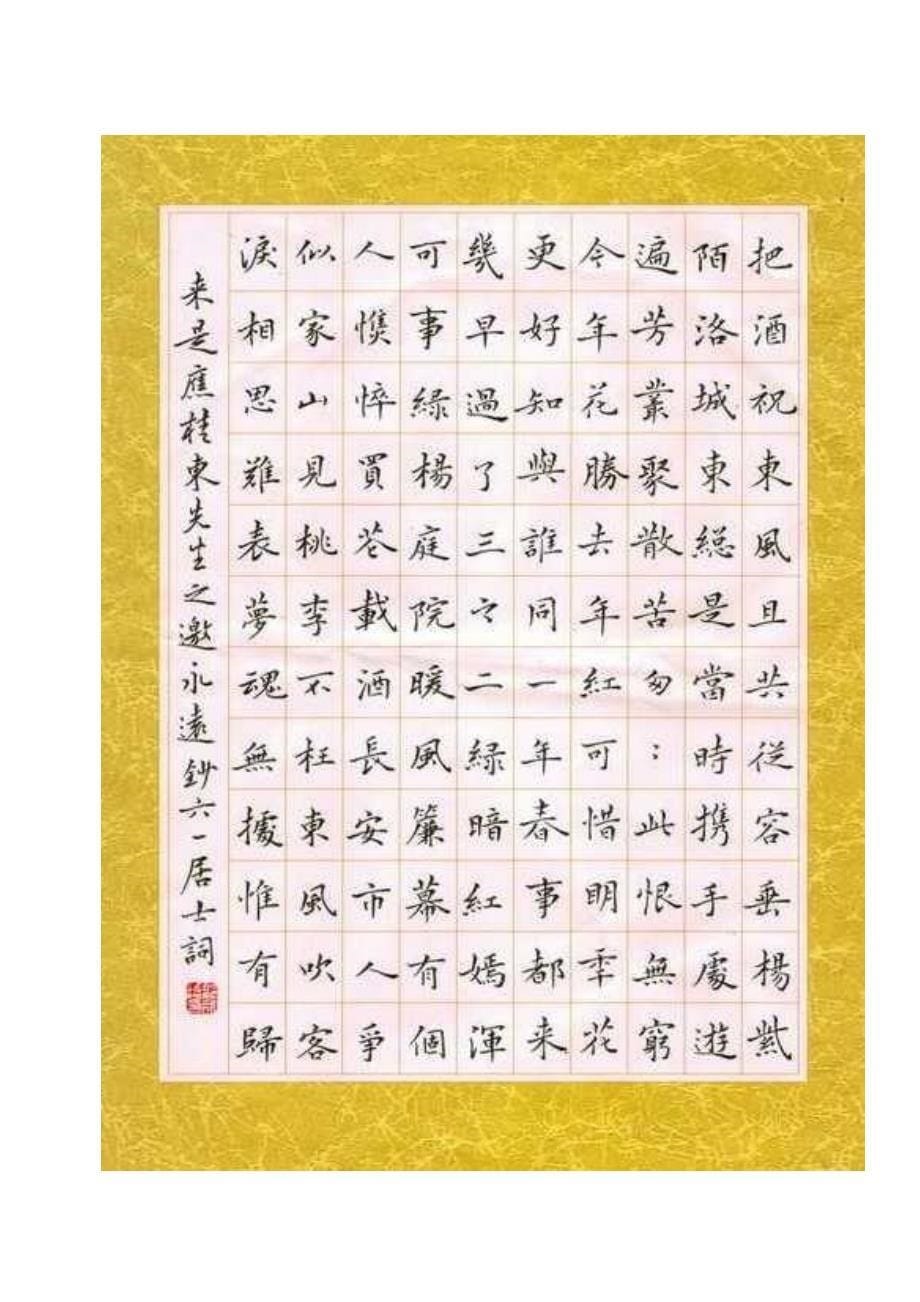 把酒祝東風且共從容垂楊紫
陌洛城東緫是當時携手處遊
遍芳叢聚散苦匆：此恨無窮
今年花勝去年紅可惜明秊花
更好知與誰同一年春事都来
幾早過了三之二緑暗紅嫣渾
可事緑楊庭院暖風簾幕有個
人憔悴買花載酒長安市人爭
似家山見桃李不枉東風吹客
淚相思難表夢魂無據惟有歸
来是應桂東先生之邀永遠鈔六一居士詞